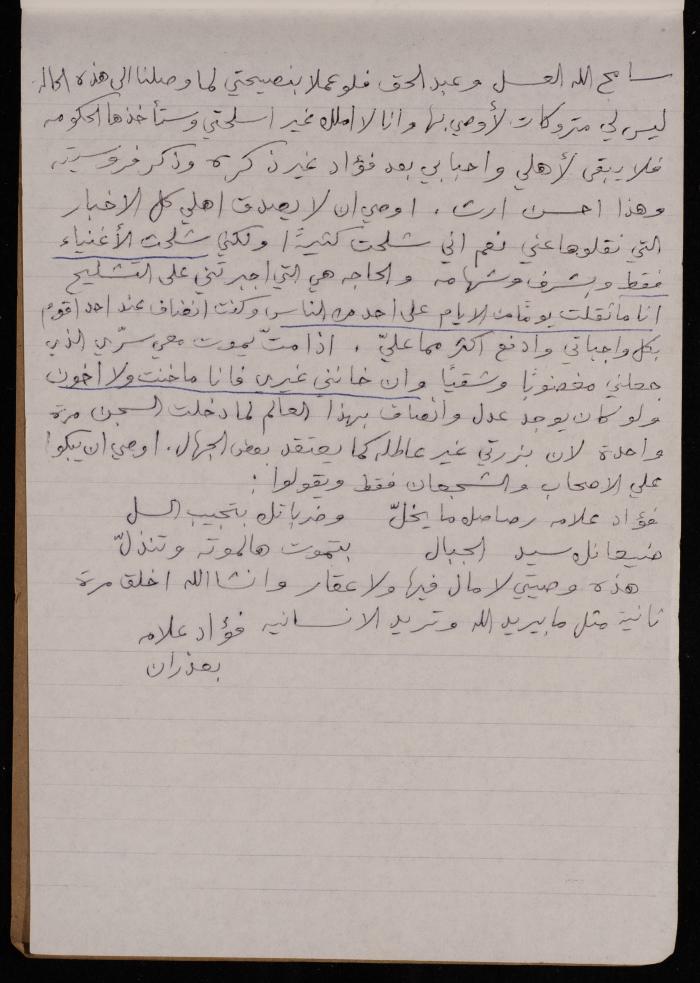 سامح الله العسل وعبد الحق فلو عملا بنصيحتي لما وصلنا الى هذه الحالة
ليس لي متروكات لأوصي بها وانا لا املك غير اسلحتي وستأخذها الحكومه
فلا يبقى لأهلي واحبابي بعد فؤاد غير ذكره وذكر فروسيته
وهذا احسن ارث . اوصي ان لا يصدق اهلي كل الاخبار
التي نقلوها عني نعم اني شلحت كثيرًا ولكني شلحت الأغنياء
فقط وبشرف وشهامه والحاجه هي التي اجبرتني على التشليح
انا ما ثقلت يومًا من الايام على احد من الناس وكنت انضاف عند احد اقوم
بكل واجباتي وادفع اكثر مما عليّ . اذا متّ يموت معي سرّي الذي
جعلني مغضوبًا وشقيًا وان خانني غيري فانا ما خنت ولا اخون
ولو كان يوجد عدل وانصاف بهذا العالم لما دخلت السجن مرة
واحدة لان بزرتي غير عاطله كما يعتقد بعض الجهال . اوصي ان يبكوا
علي الاصحاب والشجعان فقط ويقولوا :
فؤاد علامه رصاصك ما يخلّ وضرباتك بتجيب السل
ضيعانك سيد الجبال بتموت هالموته وتنذلّ
هذه وصيتي لا مال فيها ولا عقار وانشا الله اخلق مرة
ثانية مثل ما بيريد الله وتريد الانسانيه فؤاد علامه
بعذران